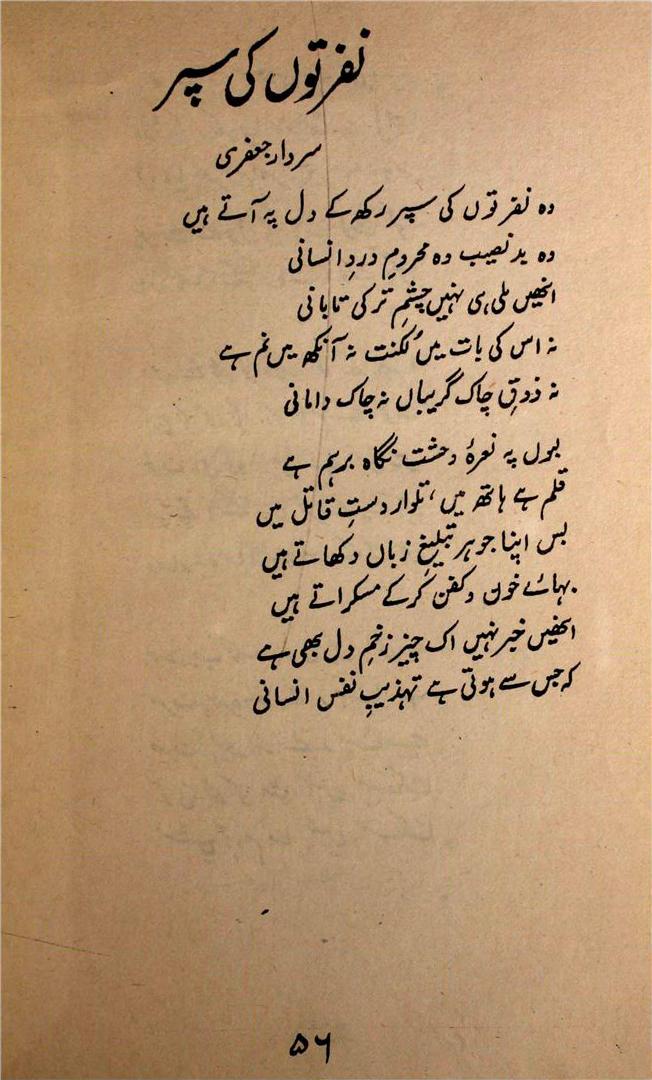 نفرتوں کی سپر
سردار جعفری
وہ نفرتوں کی سپر رکھ کے دل پہ آتے ہیں
وہ بد نصیب وہ محرومِ دردِ انسانی
انھیں ملی ہی نہیں چشمِ تر کی تابانی
نہ اس کی بات میں لکنت نہ آنکھ میں نم ہے
نہ ذوقِ چاک گریباں نہ چاک دامانی
لبوں پہ نعرۂ وحشت نگاہ برہم ہے
قلم ہے ہاتھ میں، تلوار دستِ قاتل میں
بس اپنا جوہر تبلیغِ زباں دکھاتے ہیں
بہائے خون و کفن کر کے مسکراتے ہیں
انھیں خبر نہیں اک چیز زخمِ دل بھی ہے
کہ جس سے ہوتی ہے تہذیبِ نفس انسانی
۵۶